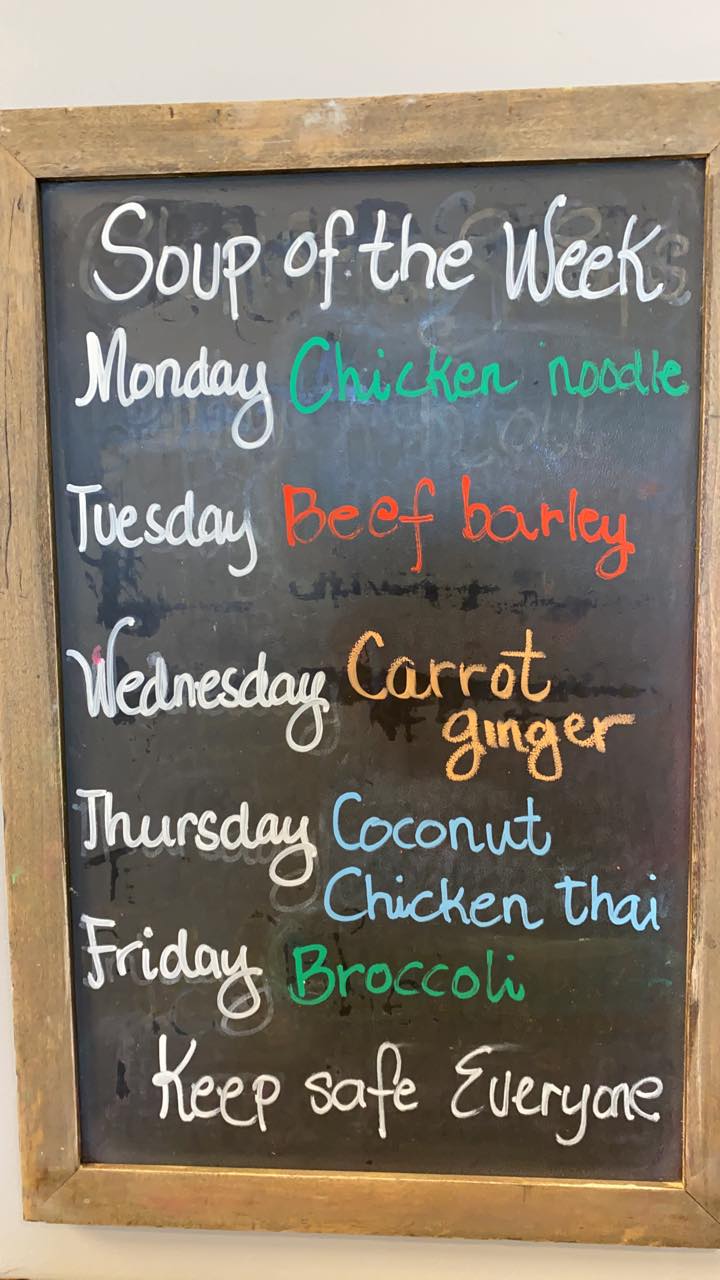 Soup of the Week
Monday Chicken noodle
Tuesday Beef barley
Wednesday Carrot
ginger
Thursday Coconut
Chicken thai
Friday Broccoli
Keep safe Everyone